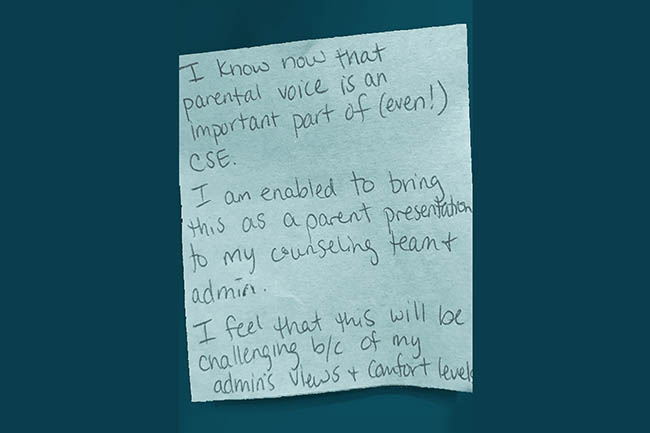 I know now that
parental voice is an
important part of (even!)
CSE.
I am enabled to bring
this as a parent presentation
to my counseling team +
admin.
I feel that this will be
challenging b/c of my
admin's views + comfort levels